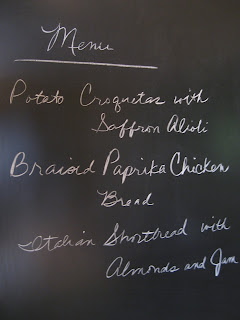 Menu
Potato Croquetas with
Saffron Alioli
Braioid Paprika Chicken
Bread
Italian Shortbread with
Almonds and Jam